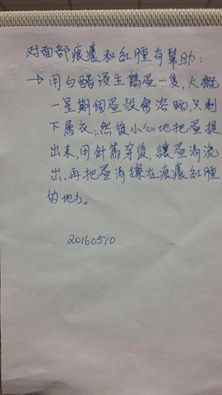 对面部痕癢和紅腫有幫助:
→用白醋浸生鷄蛋一隻,大概
一星期個蛋殼會溶晒只剩
下層衣,然後小心地把蛋提
出來,用針篤穿後,讓蛋淌流
出,再把蛋淌擦在痕癢紅腫
的地方。
20160510